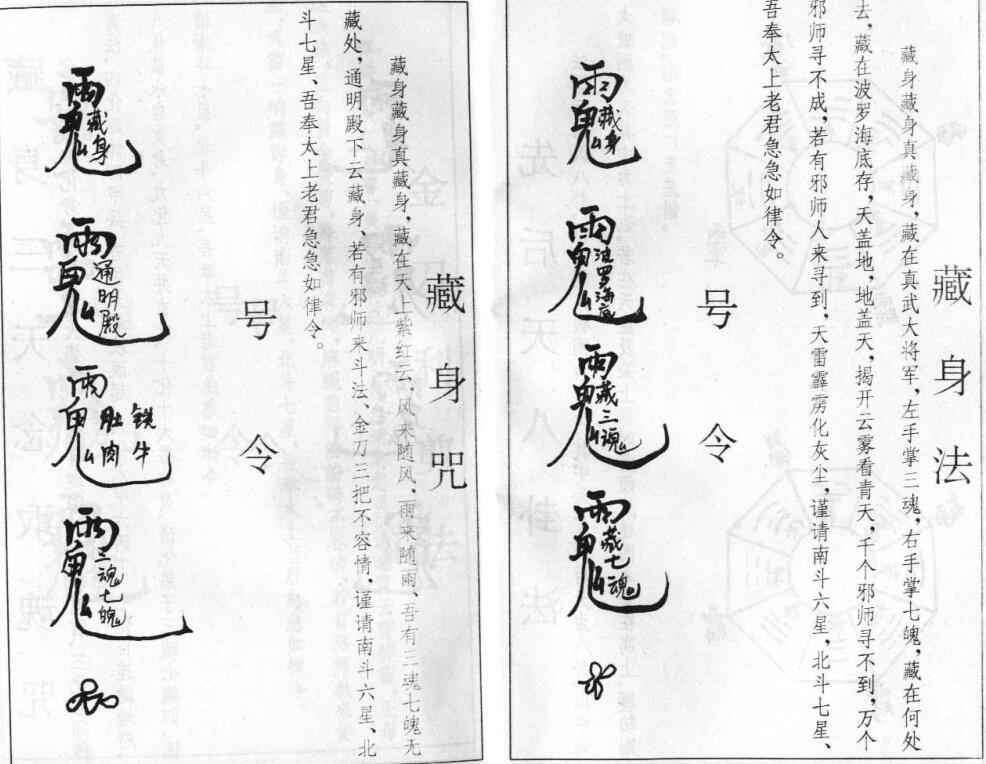 藏身法
藏身藏身真藏身,藏在真武大将军,左手掌三魂,右手掌七魄,藏在何处
去,藏在波罗海底存,天盖地,地盖天,揭开云雾看青天,千个邪师寻不到,万个
邪师寻不成,若有邪师人来寻到,天雷霹雳化灰尘,谨请南斗六星,北斗七星、
吾奉太上老君急急如律令。
号令
雨鬼藏身
雨鬼波罗海底
雨鬼藏三魂
雨鬼藏七魂
藏身咒
藏身藏身真藏身,藏在天上紫红云、风来随风、雨来随雨、吾有三魂七魄无
藏处,通明殿下云藏身、若有邪师来斗法、金刀三把不容情,谨请南斗六星、北
斗七星、吾奉太上老君急急如律令。
号令
雨鬼藏身
雨鬼通明殿
雨鬼铁牛肚肉
雨鬼三魂七魄